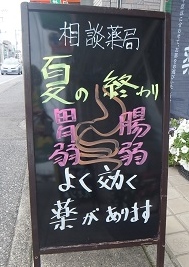 相談薬局
夏の終わり
胃腸
弱弱
よく効く
薬があります